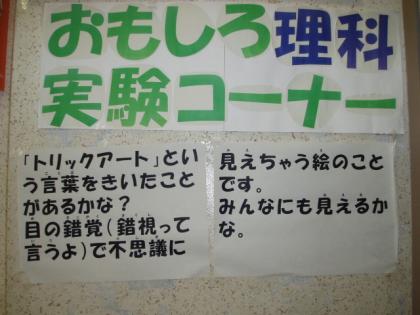 おもしろ理科
実験コーナー
「トリックアート」とい
う言葉をきいたこと
があるかな？
目の錯覚（錯視って
言うよ）で不思議に
見えちゃう絵のこと
です。
みんなにも見えるか
な。